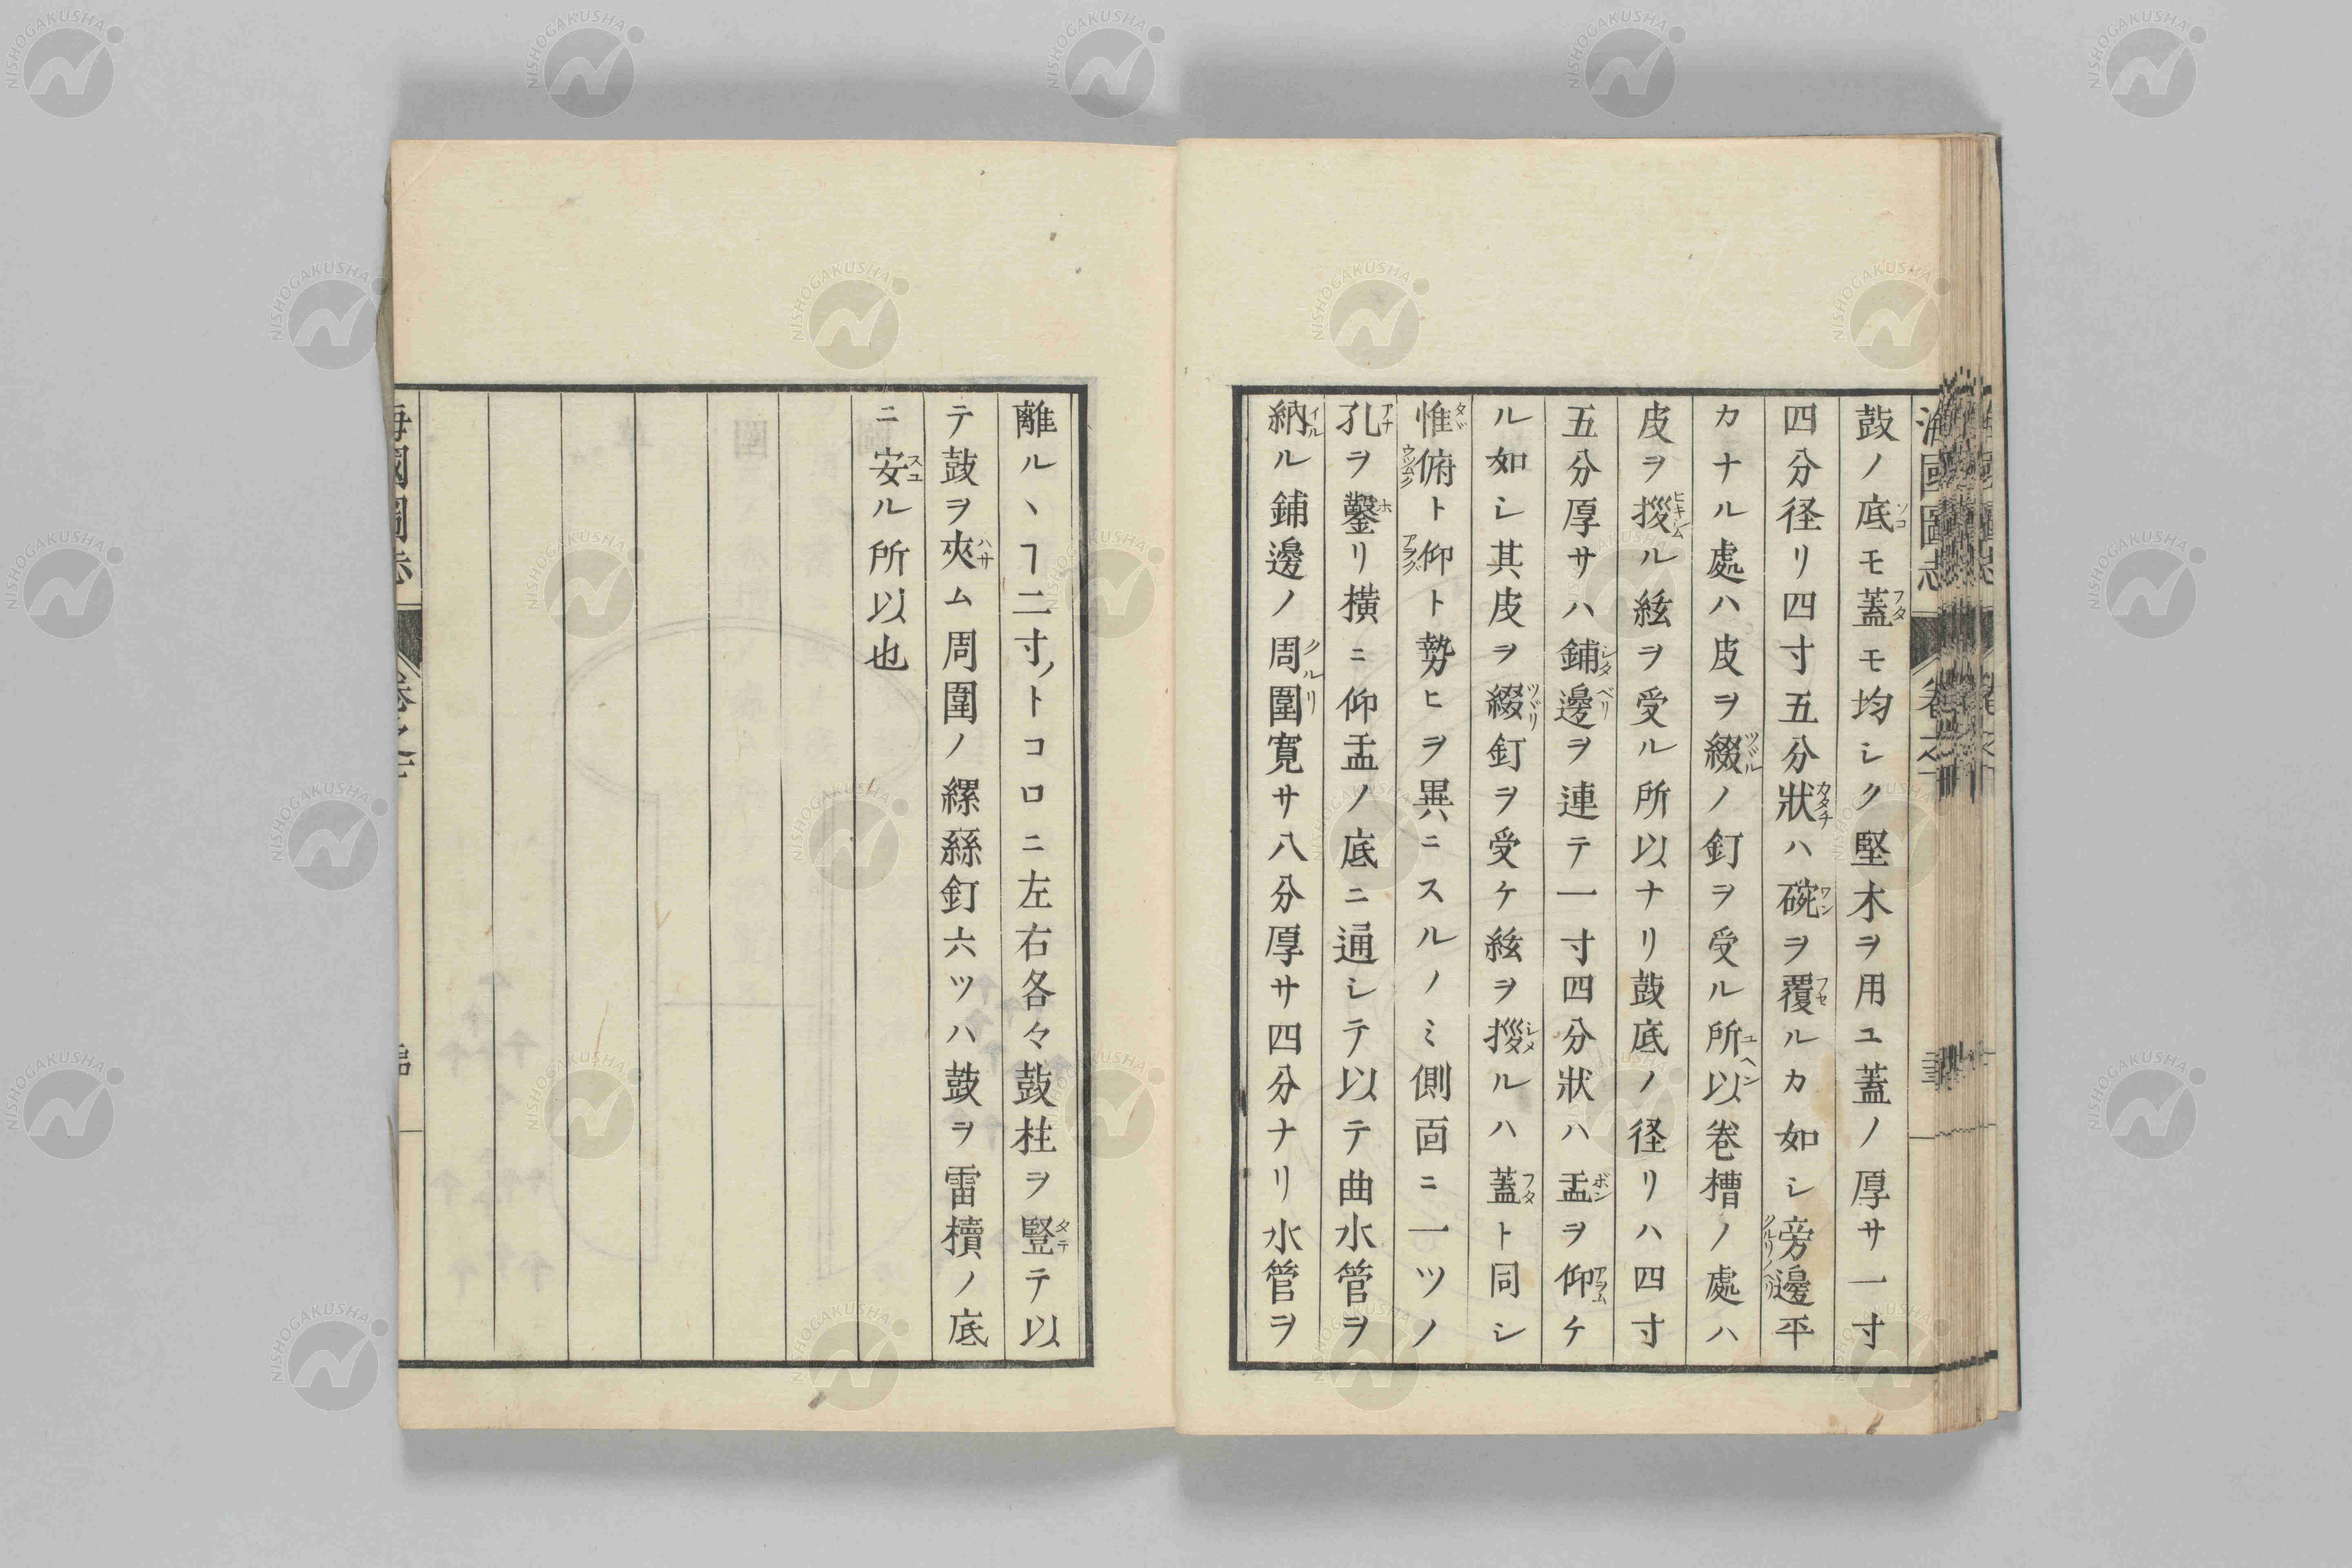 鼓ノ底モ蓋モ均シク堅木ヲ用ユ蓋ノ厚サ一寸
四分径リ四寸五分狀ハ碗ヲ覆ルカ如シ旁邊平
カナル處ハ皮ヲ綴ノ釘ヲ受ル所以巻槽ノ處ハ
皮ヲ㨻ル絃ヲ受ル所以ナリ鼓底ノ径リハ四寸
五分厚サハ鋪邊ヲ連テ一寸四分狀ハ盂ヲ仰ケ
ル如シ其皮ヲ綴釘ヲ受ケ絃ヲ㨻ルハ蓋ト同シ
惟俯ト仰ト勢ヒヲ異ニスルノミ側面ニ一ツノ
孔ヲ鑿リ横ニ仰盂ノ底ニ通シテ以テ曲水管ヲ
納ル鋪邊ノ周圍寛サ八分厚サ四分ナリ水管ヲ
離ルヽヿ二寸ノトコロニ左右各々鼓柱ヲ竪テ以
テ鼓ヲ夾ム周圍ノ縲絲釘六ツハ鼓ヲ雷櫝ノ底
ニ安ル所以也
海國圖志
NISHOGAKUSHA